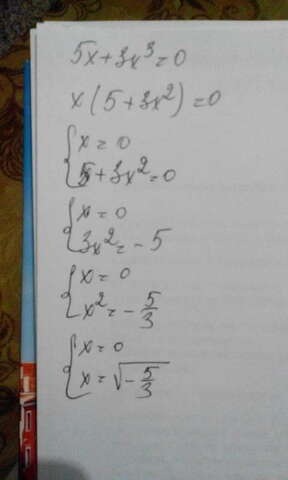 5x+3x³=0
x(5+3x²)=0
{x=0
5+3x²=0
{x=0
3x²=-5
{x=0
x²=-5/3
{x=0
x=√(-5/3)